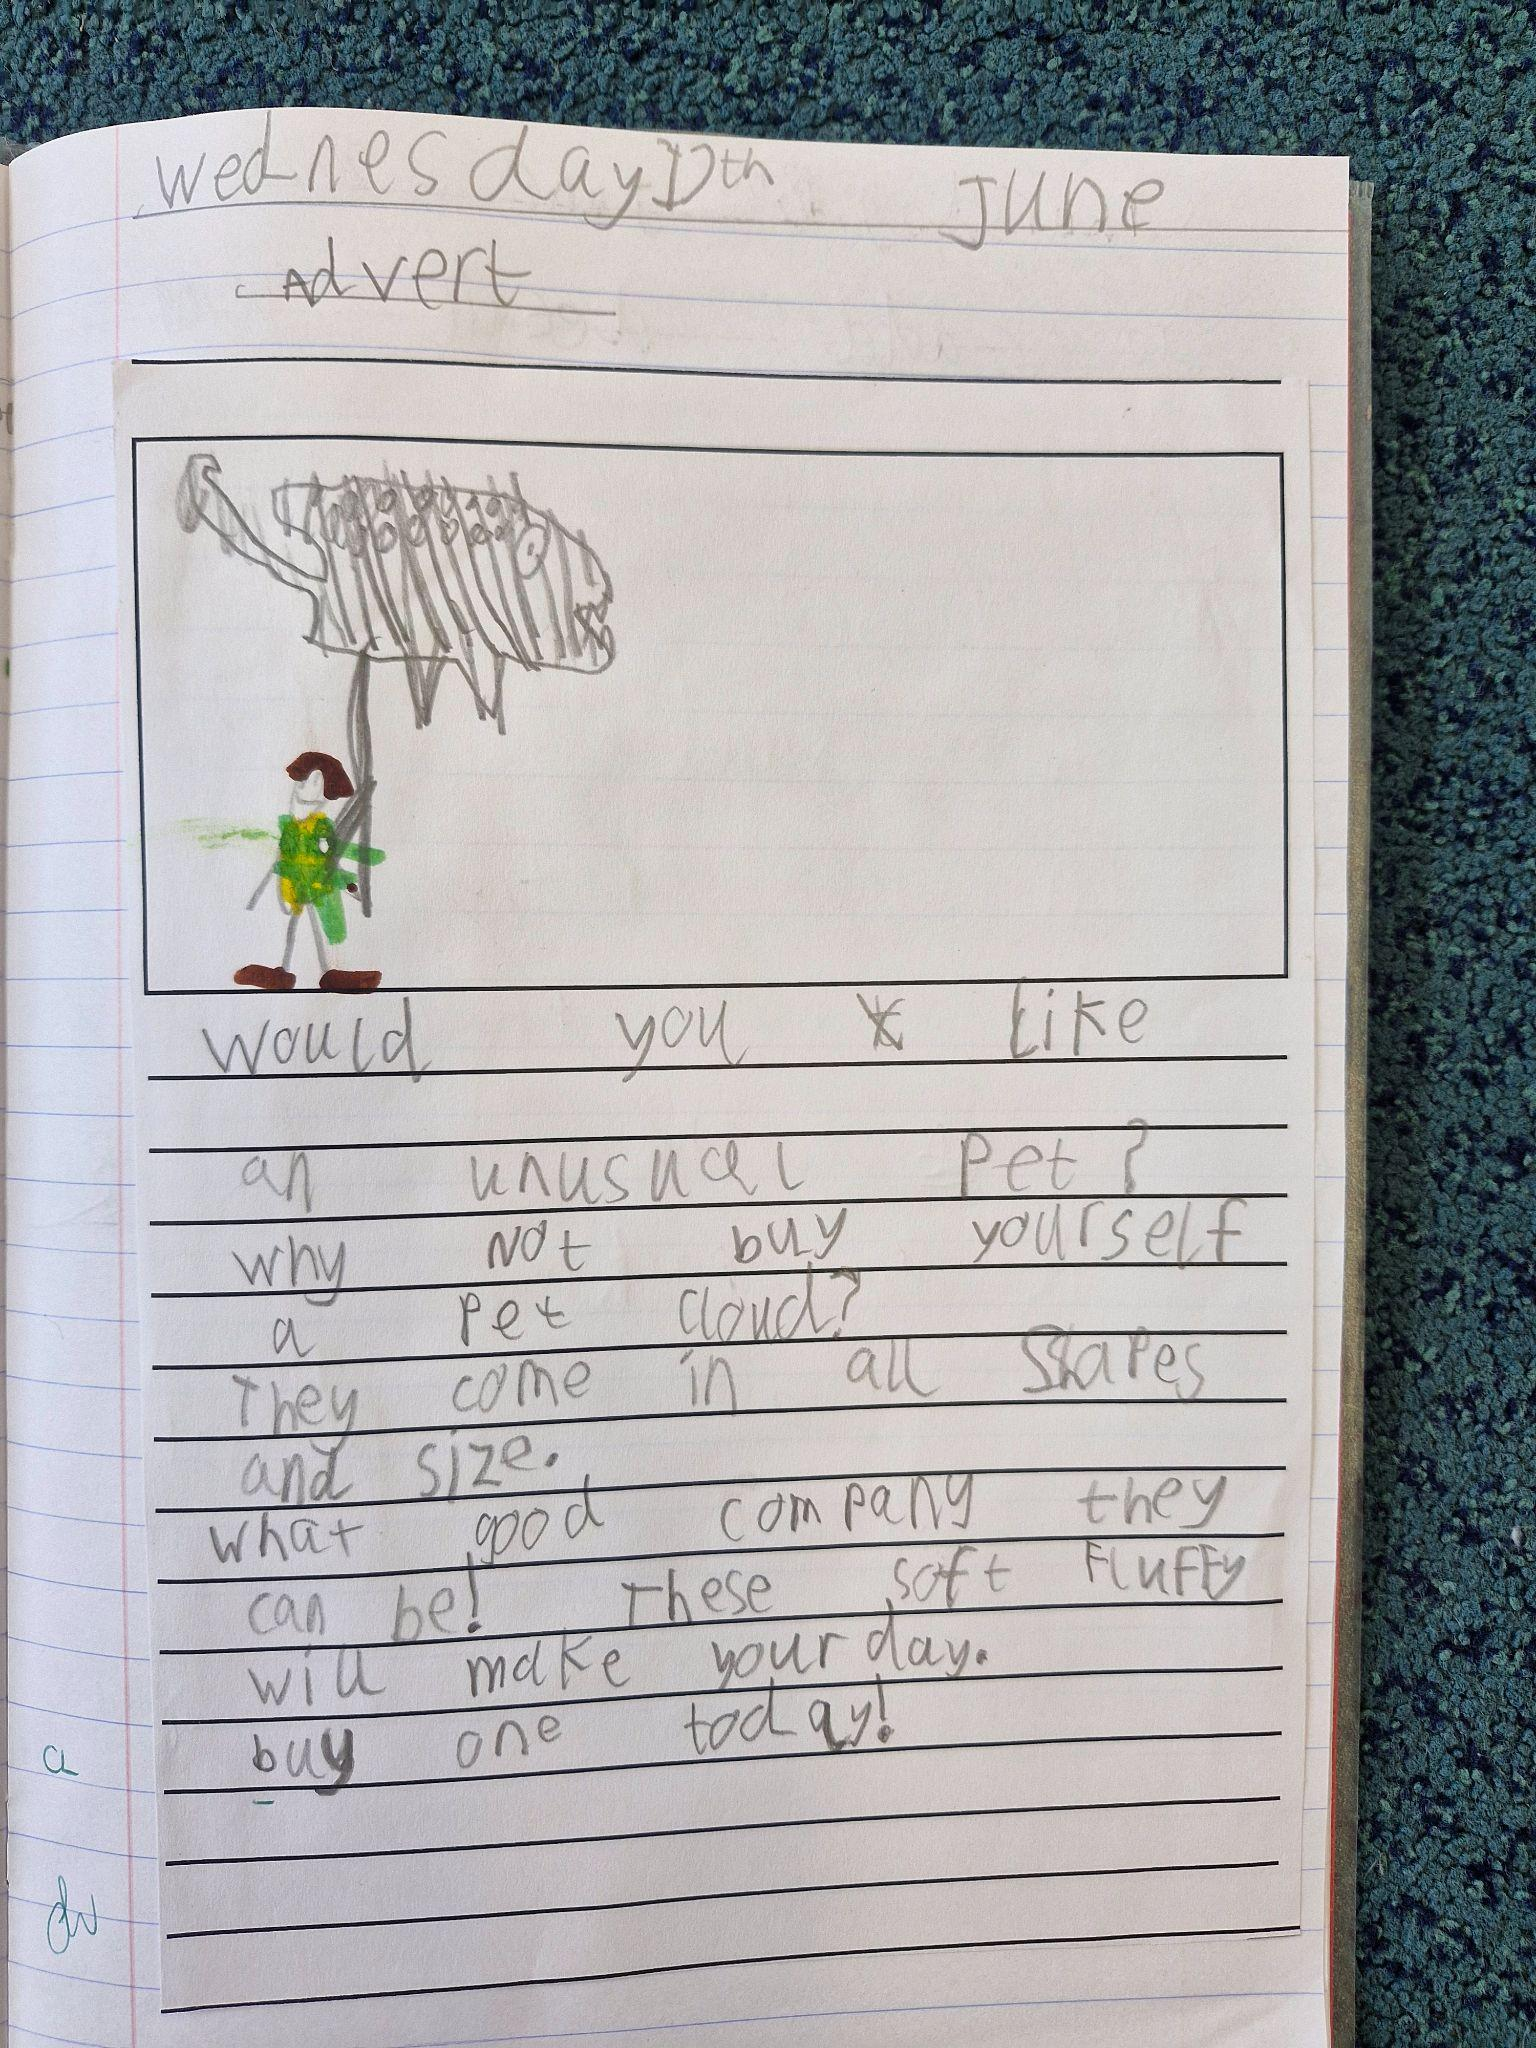 Wednesday th June
Advert
Would you like
an unusual pet?
why Not buy yourself
a pet cloud?
They come in all Shapes
and size.
what good company they
can be! These soft Fluffy
will make your day.
buy one today!
a